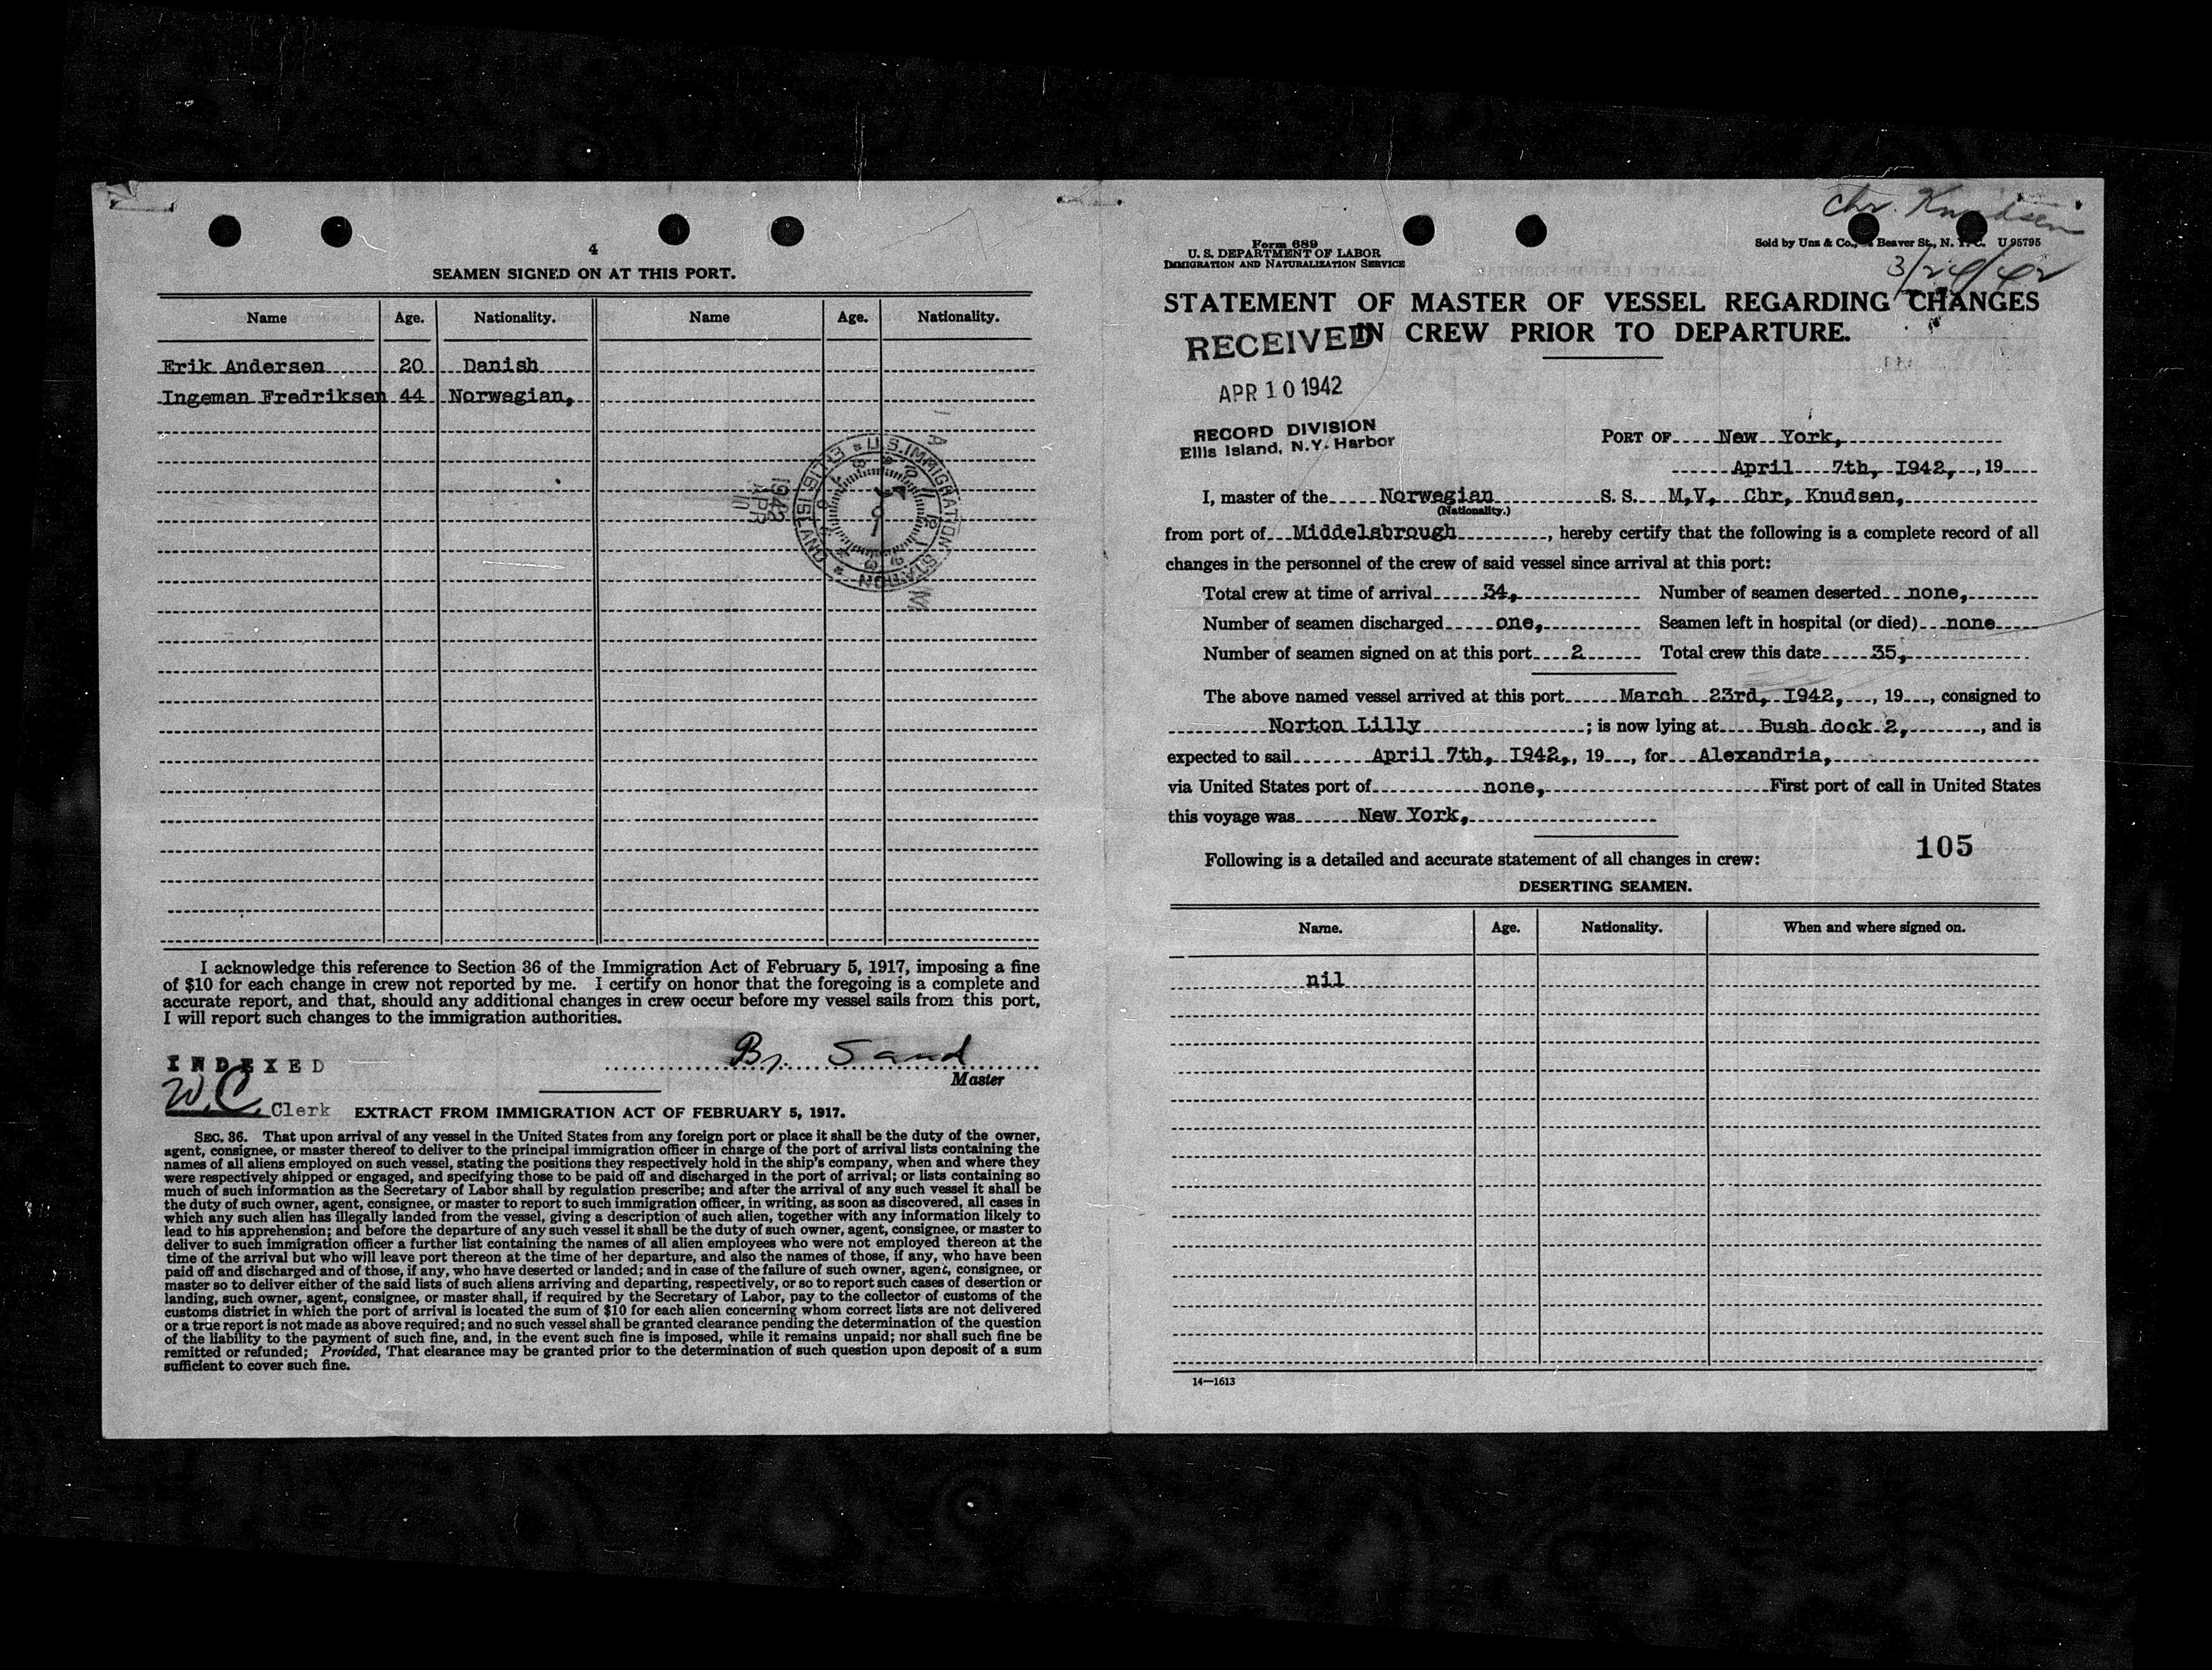 4
SEAMEN SIGNED ON AT THIS PORT.
Name Age. Nationality. Name Age. Nationality.
Erik Andersen 20 Danish
Ingeman Fredriksen 44 Norwegian,
U.S. IMMIGRATION STATION
ELLIS ISLAND
1942 APR 11
I acknowledge this reference to Section 36 of the Immigration Act of February 5, 1917, imposing a fine
of $10 for each change in crew not reported by me. I certify on honor that the foregoing is a complete and
accurate report, and that, should any additional changes in crew occur before my vessel sails from this port,
I will report such changes to the immigration authorities.
INDEXED
W.C. Clerk
Sand
Master
EXTRACT FROM IMMIGRATION ACT OF FEBRUARY 5, 1917.
SEC. 36. That upon arrival of any vessel in the United States from any foreign port or place it shall be the duty of the owner,
agent, consignee, or master thereof to deliver to the principal immigration officer in charge of the port of arrival lists containing the
names of all aliens employed on such vessel, stating the positions they respectively hold in the ship's company, when and where they
were respectively shipped or engaged, and specifying those to be paid off and discharged in the port of arrival; or lists containing so
much of such information as the Secretary of Labor shall by regulation prescribe; and after the arrival of any such vessel it shall be
the duty of such owner, agent, consignee, or master to report to such immigration officer, in writing, as soon as discovered, all cases in
which any such alien has illegally landed from the vessel, giving a description of such alien, together with any information likely to
lead to his apprehension; and before the departure of any such vessel it shall be the duty of such owner, agent, consignee, or master to
deliver to such immigration officer a further list containing the names of all alien employees who were not employed thereon at the
time of the arrival but who will leave port thereon at the time of her departure, and also the names of those, if any, who have been
paid off and discharged and of those, if any, who have deserted or landed; and in case of the failure of such owner, agent, consignee, or
master so to deliver either of the said lists of such aliens arriving and departing, respectively, or so to report such cases of desertion or
landing, such owner, agent, consignee, or master shall, if required by the Secretary of Labor, pay to the collector of customs of the
customs district in which the port of arrival is located the sum of $10 for each alien concerning whom correct lists are not delivered
or a true report is not made as above required; and no such vessel shall be granted clearance pending the determination of the question
of the liability to the payment of such fine, and, in the event such fine is imposed, while it remains unpaid; nor shall such fine be
remitted or refunded; Provided, That clearance may be granted prior to the determination of such question upon deposit of a sum
sufficient to cover such fine.
Chr. Knudsen
3/24/42
Form 689
U. S. DEPARTMENT OF LABOR
IMMIGRATION AND NATURALIZATION SERVICE
Sold by Unz & Co., Beaver St., N. Y. C. U 95795
STATEMENT OF MASTER OF VESSEL REGARDING CHANGES
IN CREW PRIOR TO DEPARTURE.
RECEIVED
APR 10 1942
RECORD DIVISION
Ellis Island, N.Y. Harbor
PORT OF New York,
April 7th, I942, , 19
I, master of the Norwegian S. S. M,V, Chr, Knudsen,
(Nationality.)
from port of Middelsbrough , hereby certify that the following is a complete record of all
changes in the personnel of the crew of said vessel since arrival at this port:
Total crew at time of arrival 34, Number of seamen deserted none,
Number of seamen discharged one, Seamen left in hospital (or died) none
Number of seamen signed on at this port 2 Total crew this date 35,
The above named vessel arrived at this port March 23rd, I942, , 19 , consigned to
Norton Lilly ; is now lying at Bush dock 2, , and is
expected to sail April 7th, I942, , 19 , for Alexandria,
via United States port of none, First port of call in United States
this voyage was New York,
105
Following is a detailed and accurate statement of all changes in crew:
DESERTING SEAMEN.
Name. Age. Nationality. When and where signed on.
nil
14—1613